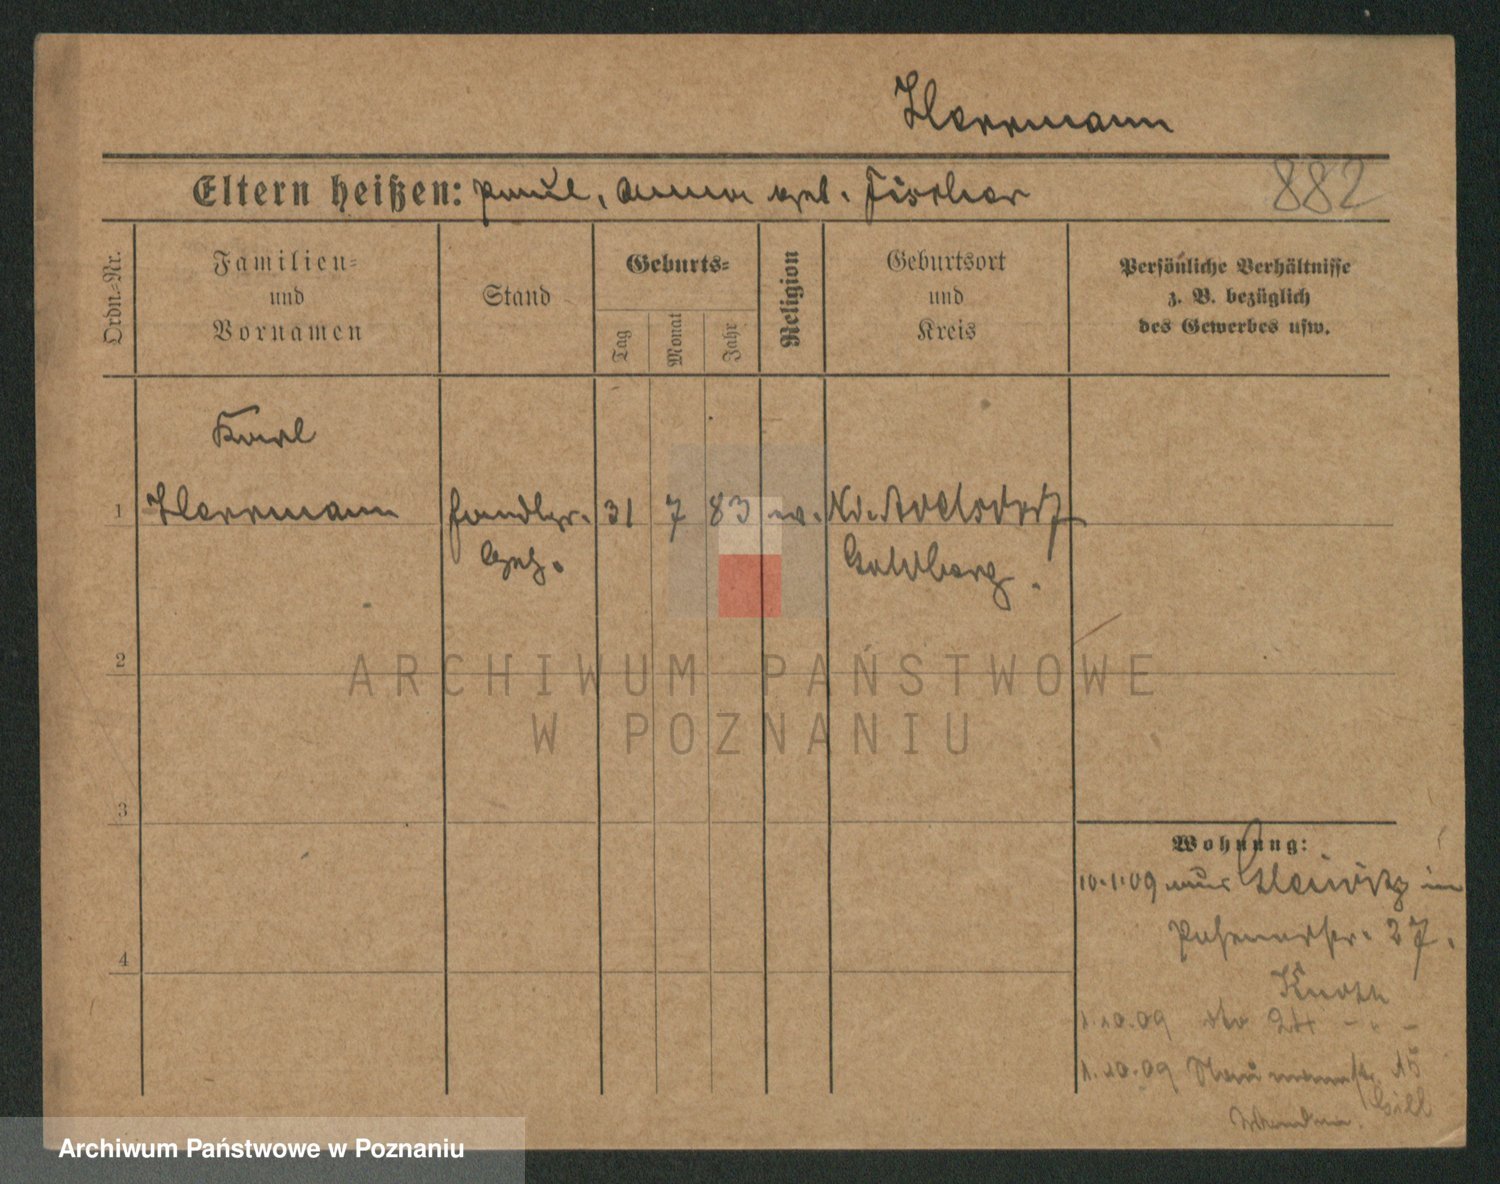 Herrmann
Eltern heißen: Paul, Anna geb. Fischer
882
Ordn.-Nr.
Familien-
und
Vornamen
Stand
Geburts-
Tag
Monat
Jahr
Religion
Geburtsort
und
Kreis
Persönliche Verhältnisse
z. B. bezüglich
des Gewerbes usw.
Karl
1 Herrmann Handlgs. 31 7 83 ev. Nd. Adelsdorf
Geh. Goldberg.
2
3
4
ARCHIWUM PAŃSTWOWE
W POZNANIU
Wohnung:
10.1.09 aus Gleiwitz in
Posenerstr. 27.
1.10.09 dto 24 - " -
1.10.09 Naumannstr. 15
Archiwum Państwowe w Poznaniu